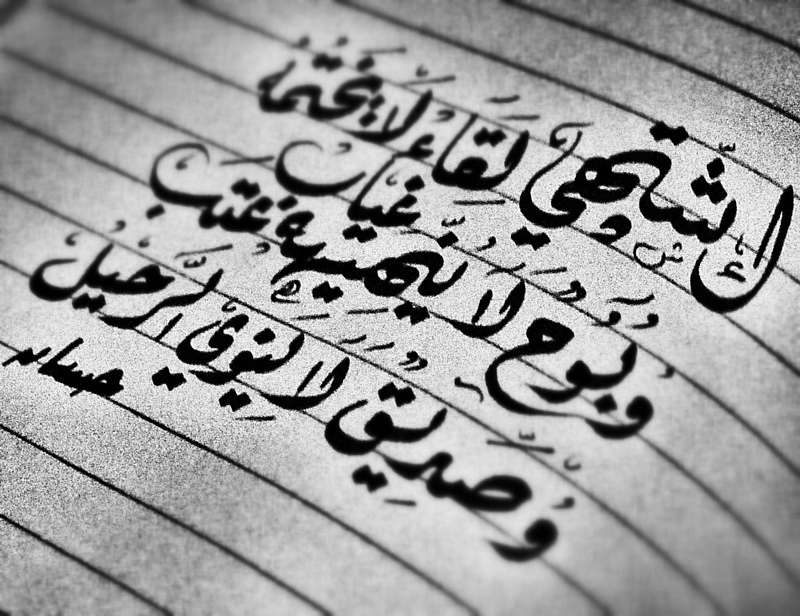 أَشتهي لقاءً لا يختمه
غيابٌ
وبوحٌ لا ينهيه عتب
وصديقٌ لا ينوي الرَّحيل